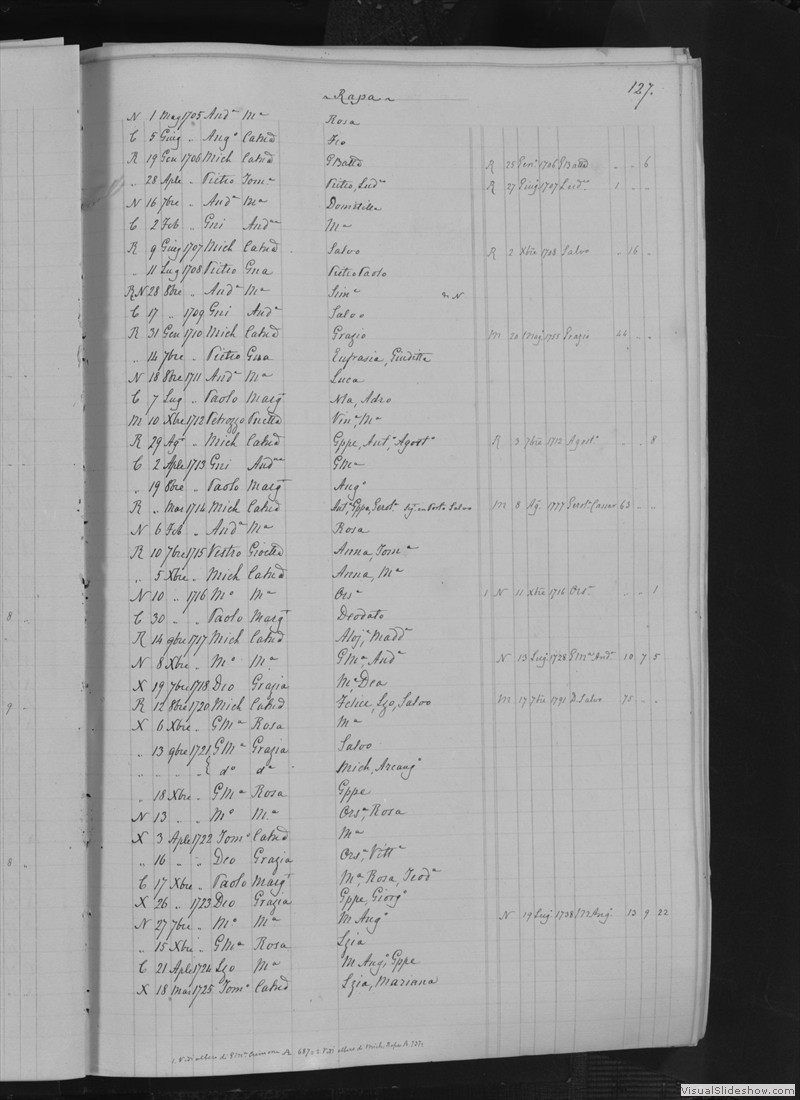 127.
~ Rapa ~
N 1 Mag 1705 Andª Mª Rosa
C 5 Giug " Angº Catnd Feo
R 19 Gen 1706 Mich Catnd GBatta R 25 Genº 1706 GBatta " " 6
" 28 Aple " Pietro Tomª Pietro, Ludª R 27 Giug 1707 Ludª 1 " "
N 16 7bre " Andª Mª Domitilla
C 2 Feb " Gni Andª Mª
R 9 Giug 1707 Mich Catnd Salvo R 2 Xbre 1708 Salvo " 16 "
" 11 Lug 1708 Pietro Gna Pietro Paolo
R N 28 8bre " Andª Mª Simª N
C 17 " 1709 Gni Andª Salvo
R 31 Gen 1710 Mich Catnd Grazio M 20 Mag 1755 Grazio 44 " "
" 14 7bre " Pietro Gna Eufrasia, Giuditta
N 18 8bre 1711 Andª Mª Luca
C 7 Lug " Paolo Margt Nla, Adeo
M 10 Xbre 1712 Petruzzo Vinª Mª
R 29 Agº " Mich Catnd Gppe, Antº, Agostº R 3 7bre 1712 Agostº " " 8
C 2 Aple 1713 Gni Andª GMª
" 19 8bre " Paolo Margt Angº
R " Mar 1714 Mich Catnd Antº, Gppa, Gerotº in Porto Salvo M 8 Ag. 1777 Gerotº 63 " "
N 6 Feb " Andª Mª Rosa
R 10 7bre 1715 Anna, Tomª
" 5 Xbre " Mich Catnd Anna, Mª
N 10 " 1716 Mº Mª Orsª 1 N 11 Xbre 1716 Orsª " " 1
C 30 " " Paolo Margt Deodato
R 14 9bre 1717 Mich Catnd Aloj, Maddª
N 8 Xbre " Mº Mª GMª, Andª N 13 Lug 1728 GMª Andª 10 7 5
X 19 7bre 1718 Deo Grazia Mª Dea
R 12 8bre 1720 Mich Catnd Felice, Lzo, Salvo M 17 7bre 1791 D. Salvo 75 " "
X 6 Xbre " GMª Rosa Mª
" 13 9bre 1721 GMª Grazia Salvo
" " " " { dº dª Mich, Arcangº
" 18 Xbre " GMª Rosa Gppe
N 13 " " Mº Mª Orsª, Rosa
X 3 Aple 1722 Tomº Catnd Mª
" 16 " " Deo Grazia Orsª, Vittª
C 17 Xbre " Paolo Margt Mª, Rosa, Teodª
X 26 " 1723 Deo Grazia Gppe, Giorgº
N 27 7bre " Mº Mª M Angº N 19 Lug 1738 M Angº 13 9 22
" 15 Xbre " GMª Rosa Lzia
C 21 Aple 1724 Lzo Mª M Angº, Gppe
X 18 Mar 1725 Tomº Catnd Lzia, Mariana
VisualSlideshow.com